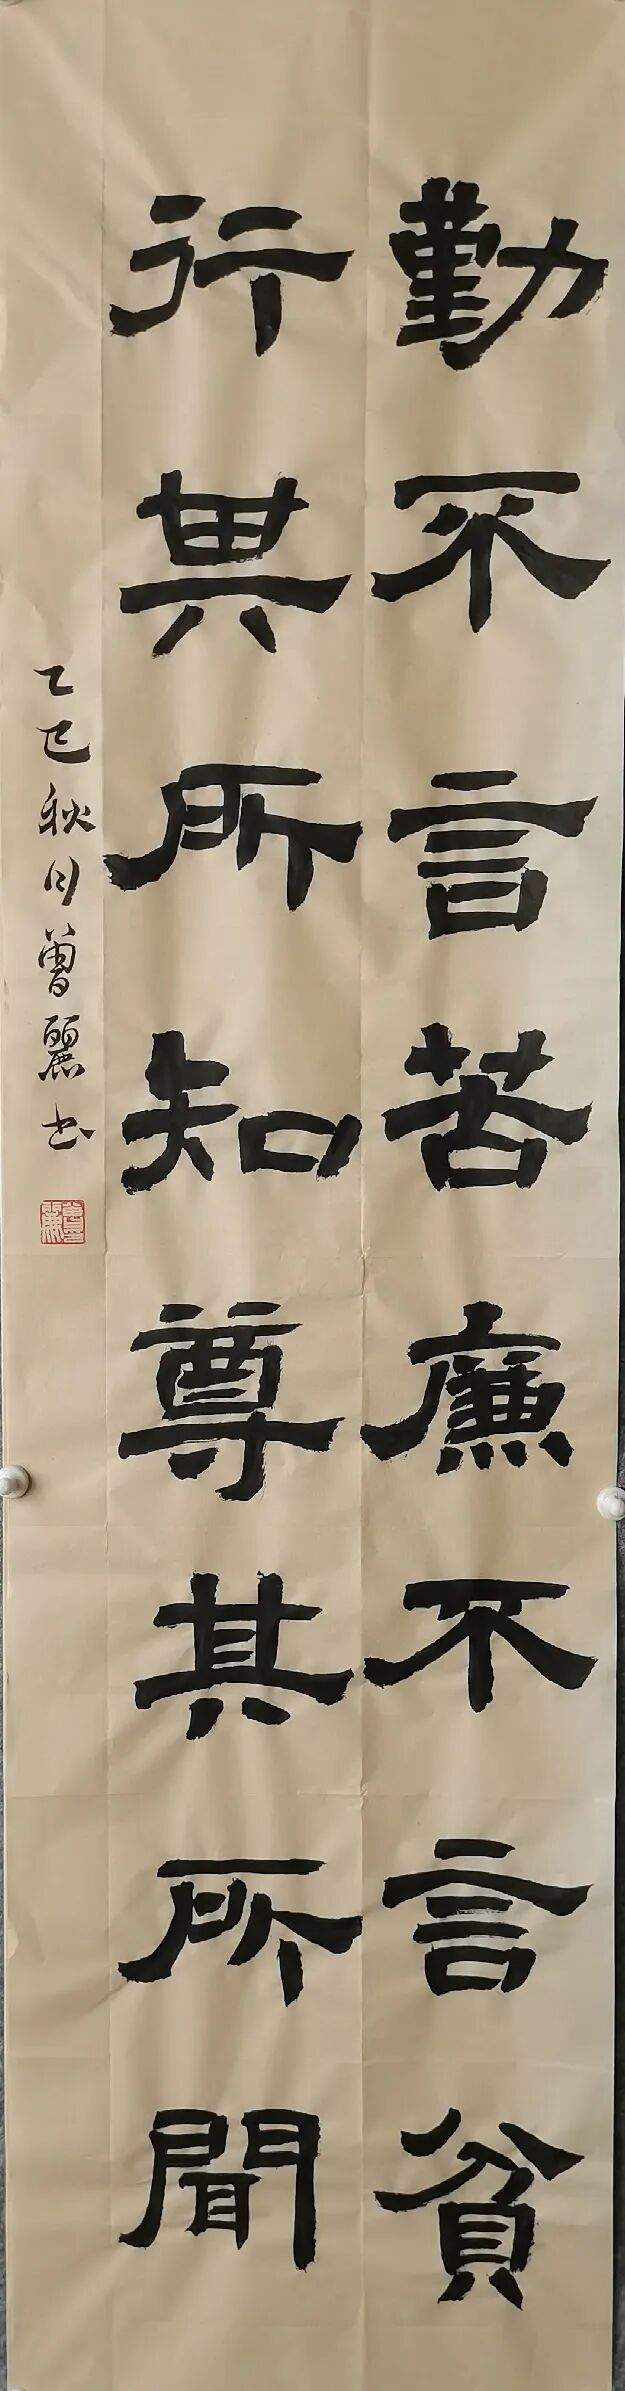 勤不言苦廉不言貧
行其所知尊其所聞
乙巳秋月曾麗書